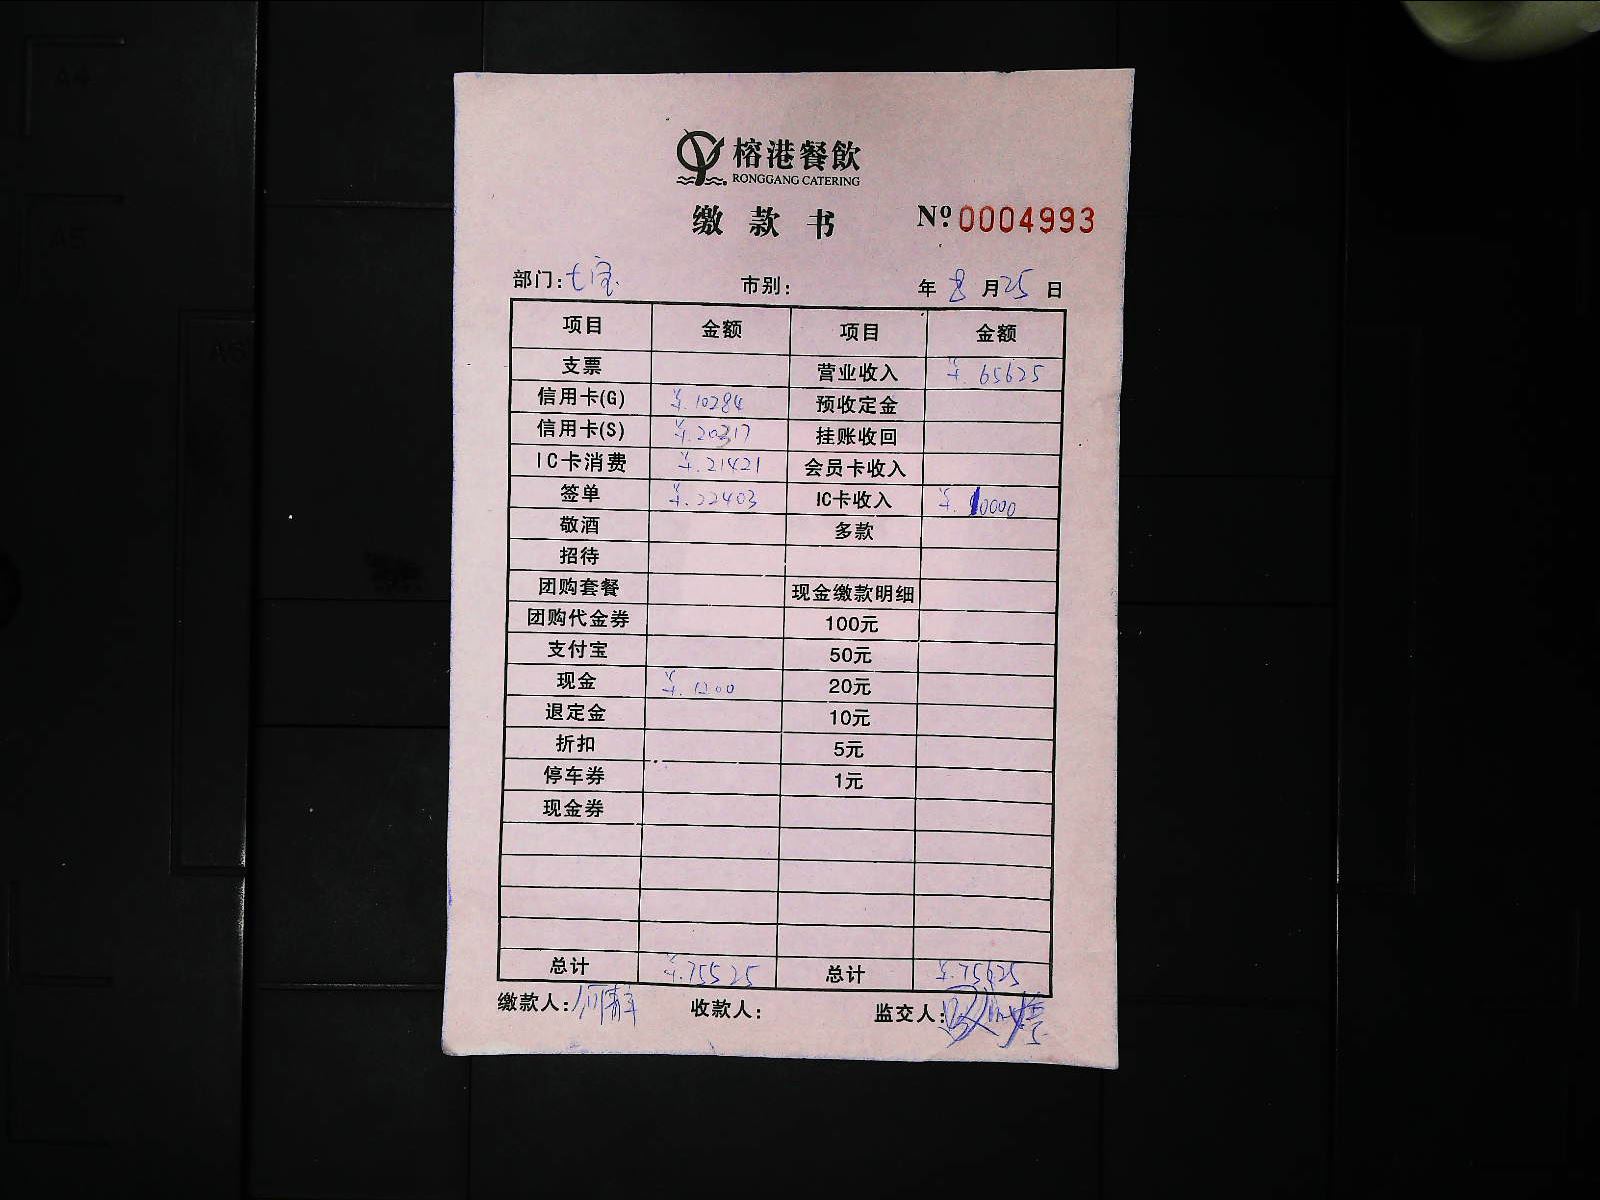 榕港餐飲
RONGGANG CATERING
缴款书 Nº 0004993
部门:七宝 市别: 年 8 月 25 日
项目 金额 项目 金额
支票 营业收入 ¥.65625
信用卡(G) ¥.10284 预收定金
信用卡(S) ¥.20317 挂账收回
IC卡消费 ¥.21421 会员卡收入
签单 ¥.22403 IC卡收入 ¥.10000
敬酒 多款
招待
团购套餐 现金缴款明细
团购代金券 100元
支付宝 50元
现金 ¥.1200 20元
退定金 10元
折扣 5元
停车券 1元
现金券
总计 ¥.75525 总计 ¥.75625
缴款人: 收款人: 监交人:
A4
A5
A6